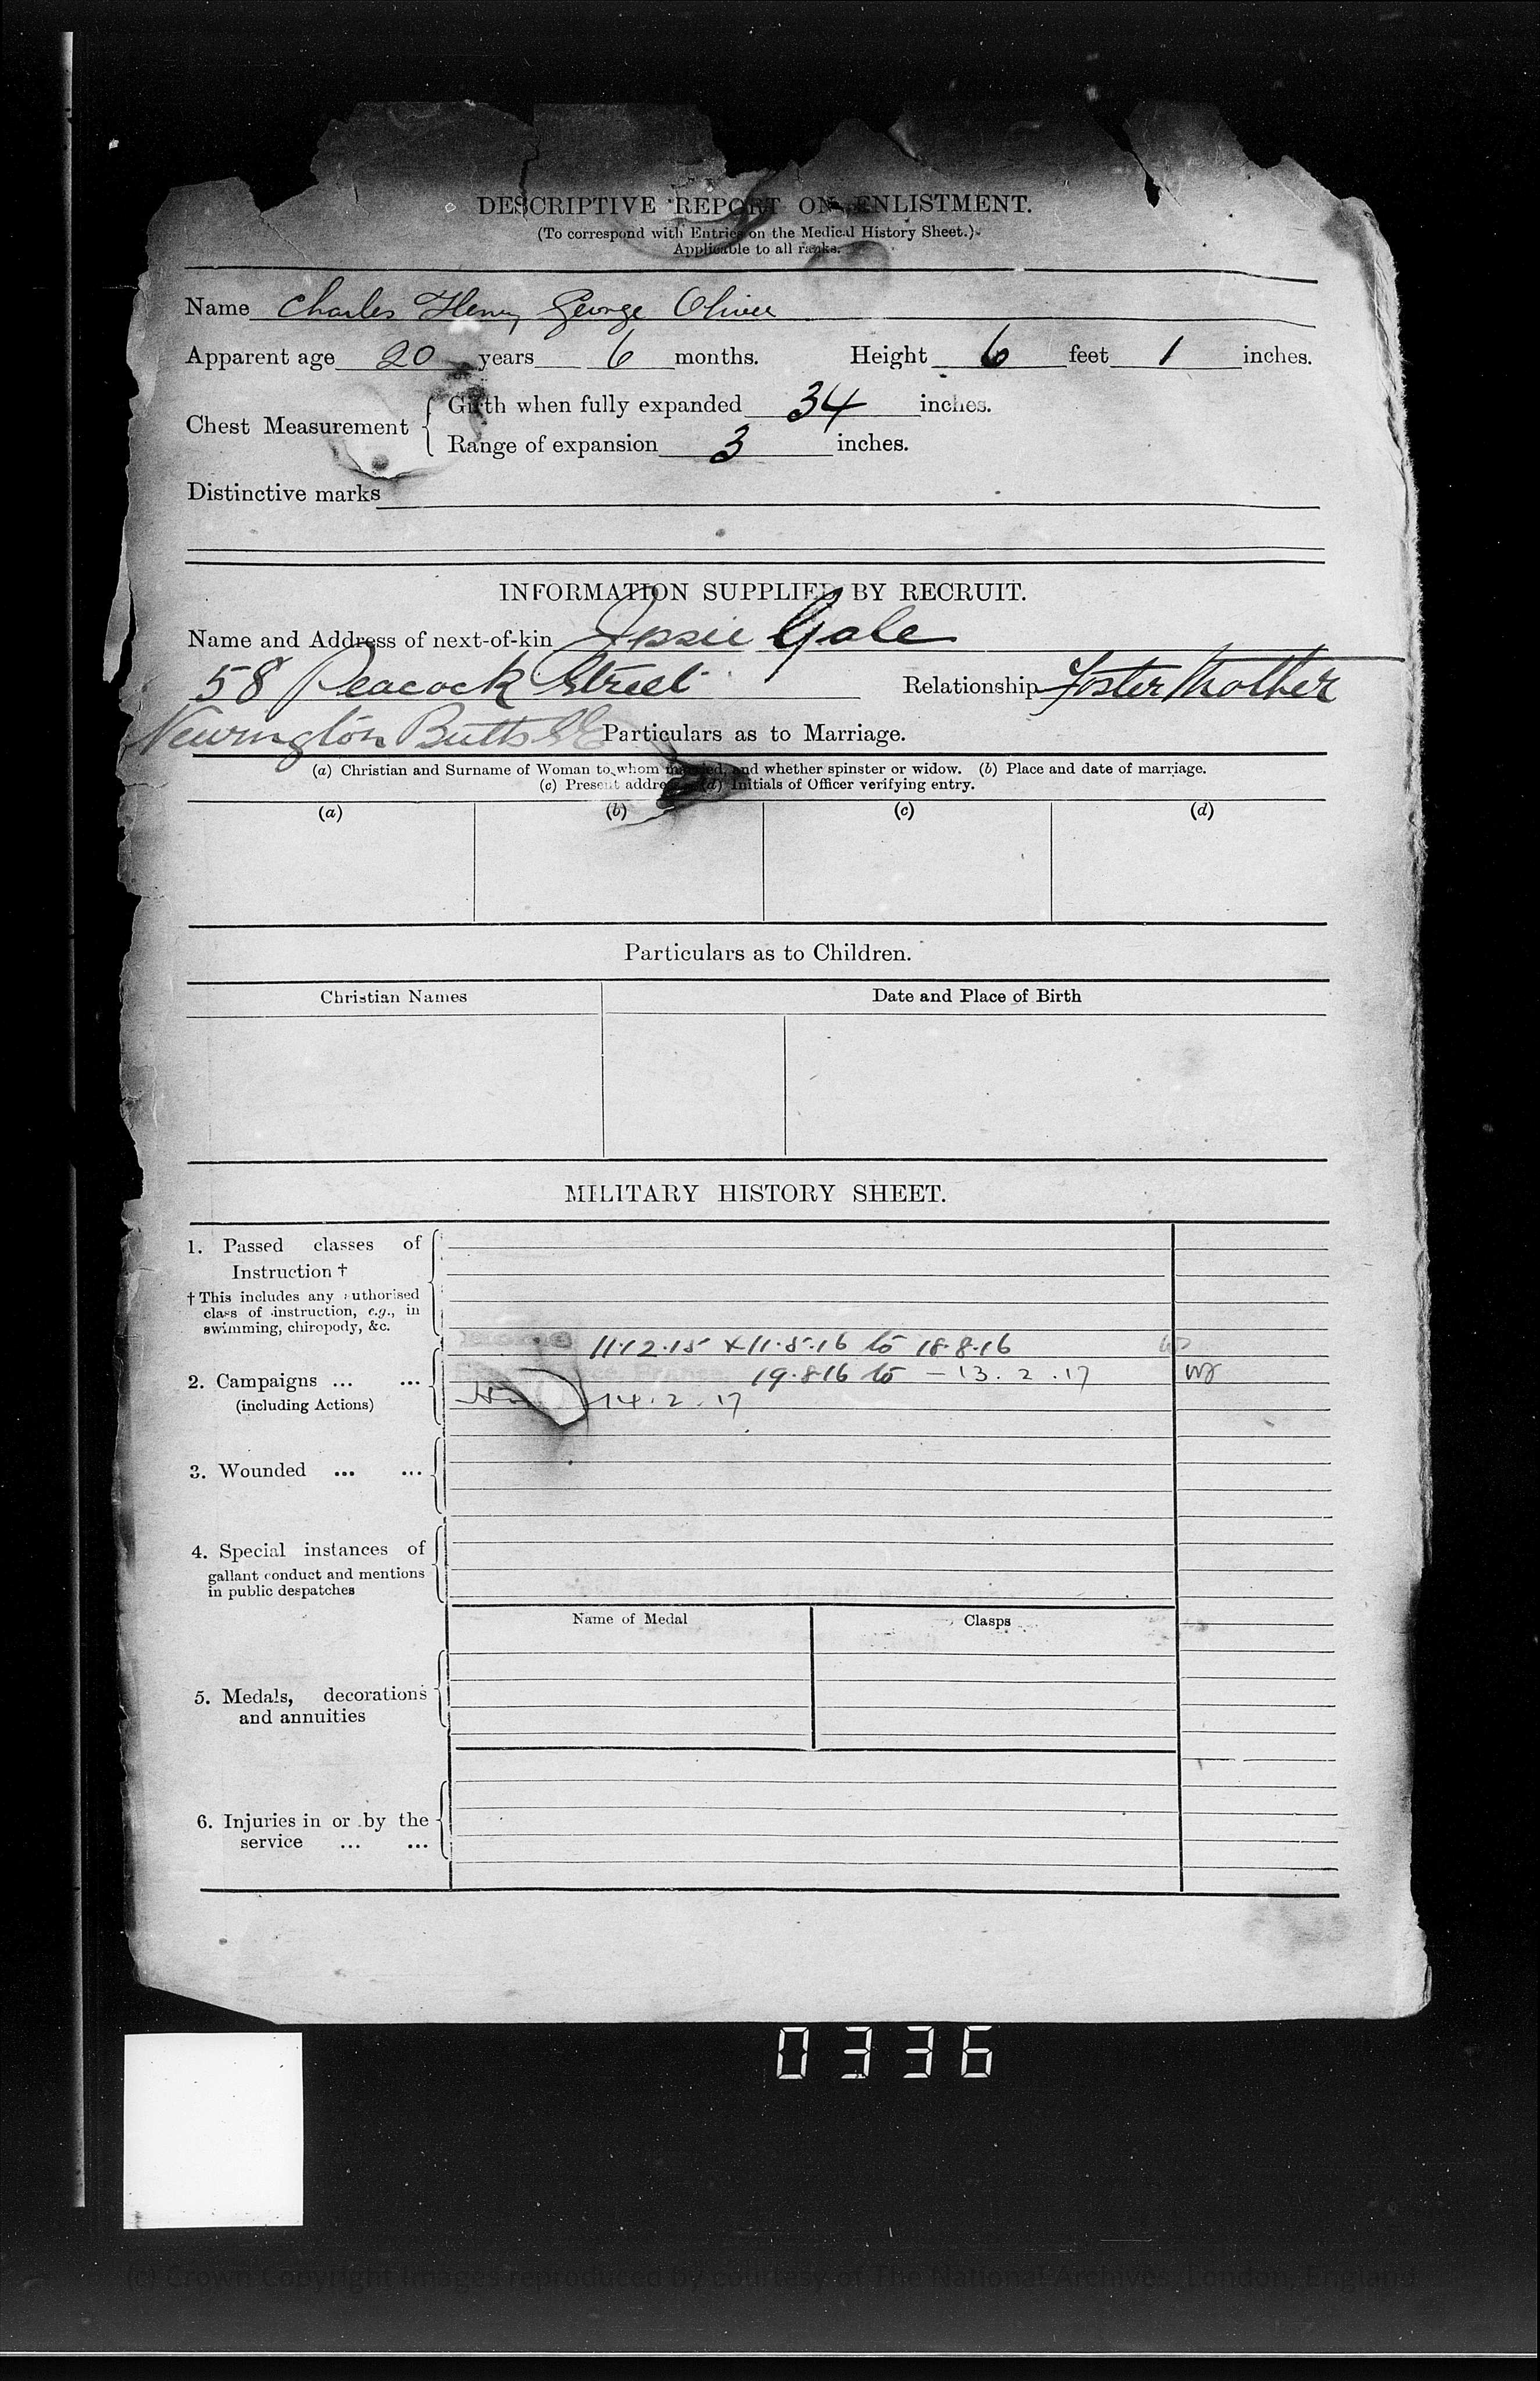 DESCRIPTIVE REPORT ON ENLISTMENT.
(To correspond with Entries on the Medical History Sheet.)
Applicable to all ranks.
Name Charles Henry George Oliver
Apparent age 20 years 6 months. Height 6 feet 1 inches.
Chest Measurement { Girth when fully expanded 34 inches.
Range of expansion 3 inches.
Distinctive marks
INFORMATION SUPPLIED BY RECRUIT.
Name and Address of next-of-kin Jessie Gale
58 Peacock Street Relationship Foster Mother
Newington Butts SE Particulars as to Marriage.
(a) Christian and Surname of Woman to whom married, and whether spinster or widow. (b) Place and date of marriage.
(c) Present address. (d) Initials of Officer verifying entry.
(a) (b) (c) (d)
Particulars as to Children.
Christian Names Date and Place of Birth
MILITARY HISTORY SHEET.
1. Passed classes of
Instruction †
† This includes any authorised
class of instruction, e.g., in
swimming, chiropody, &c.
11.12.15 & 11.5.16 to 18.8.16
2. Campaigns ... ... 19.8.16 to - 13.2.17
(including Actions) 14.2.17
3. Wounded ... ...
4. Special instances of
gallant conduct and mentions
in public despatches
Name of Medal Clasps
5. Medals, decorations
and annuities
6. Injuries in or by the
service ... ...
0336
(c) Crown Copyright Images reproduced by courtesy of The National Archives, London, England